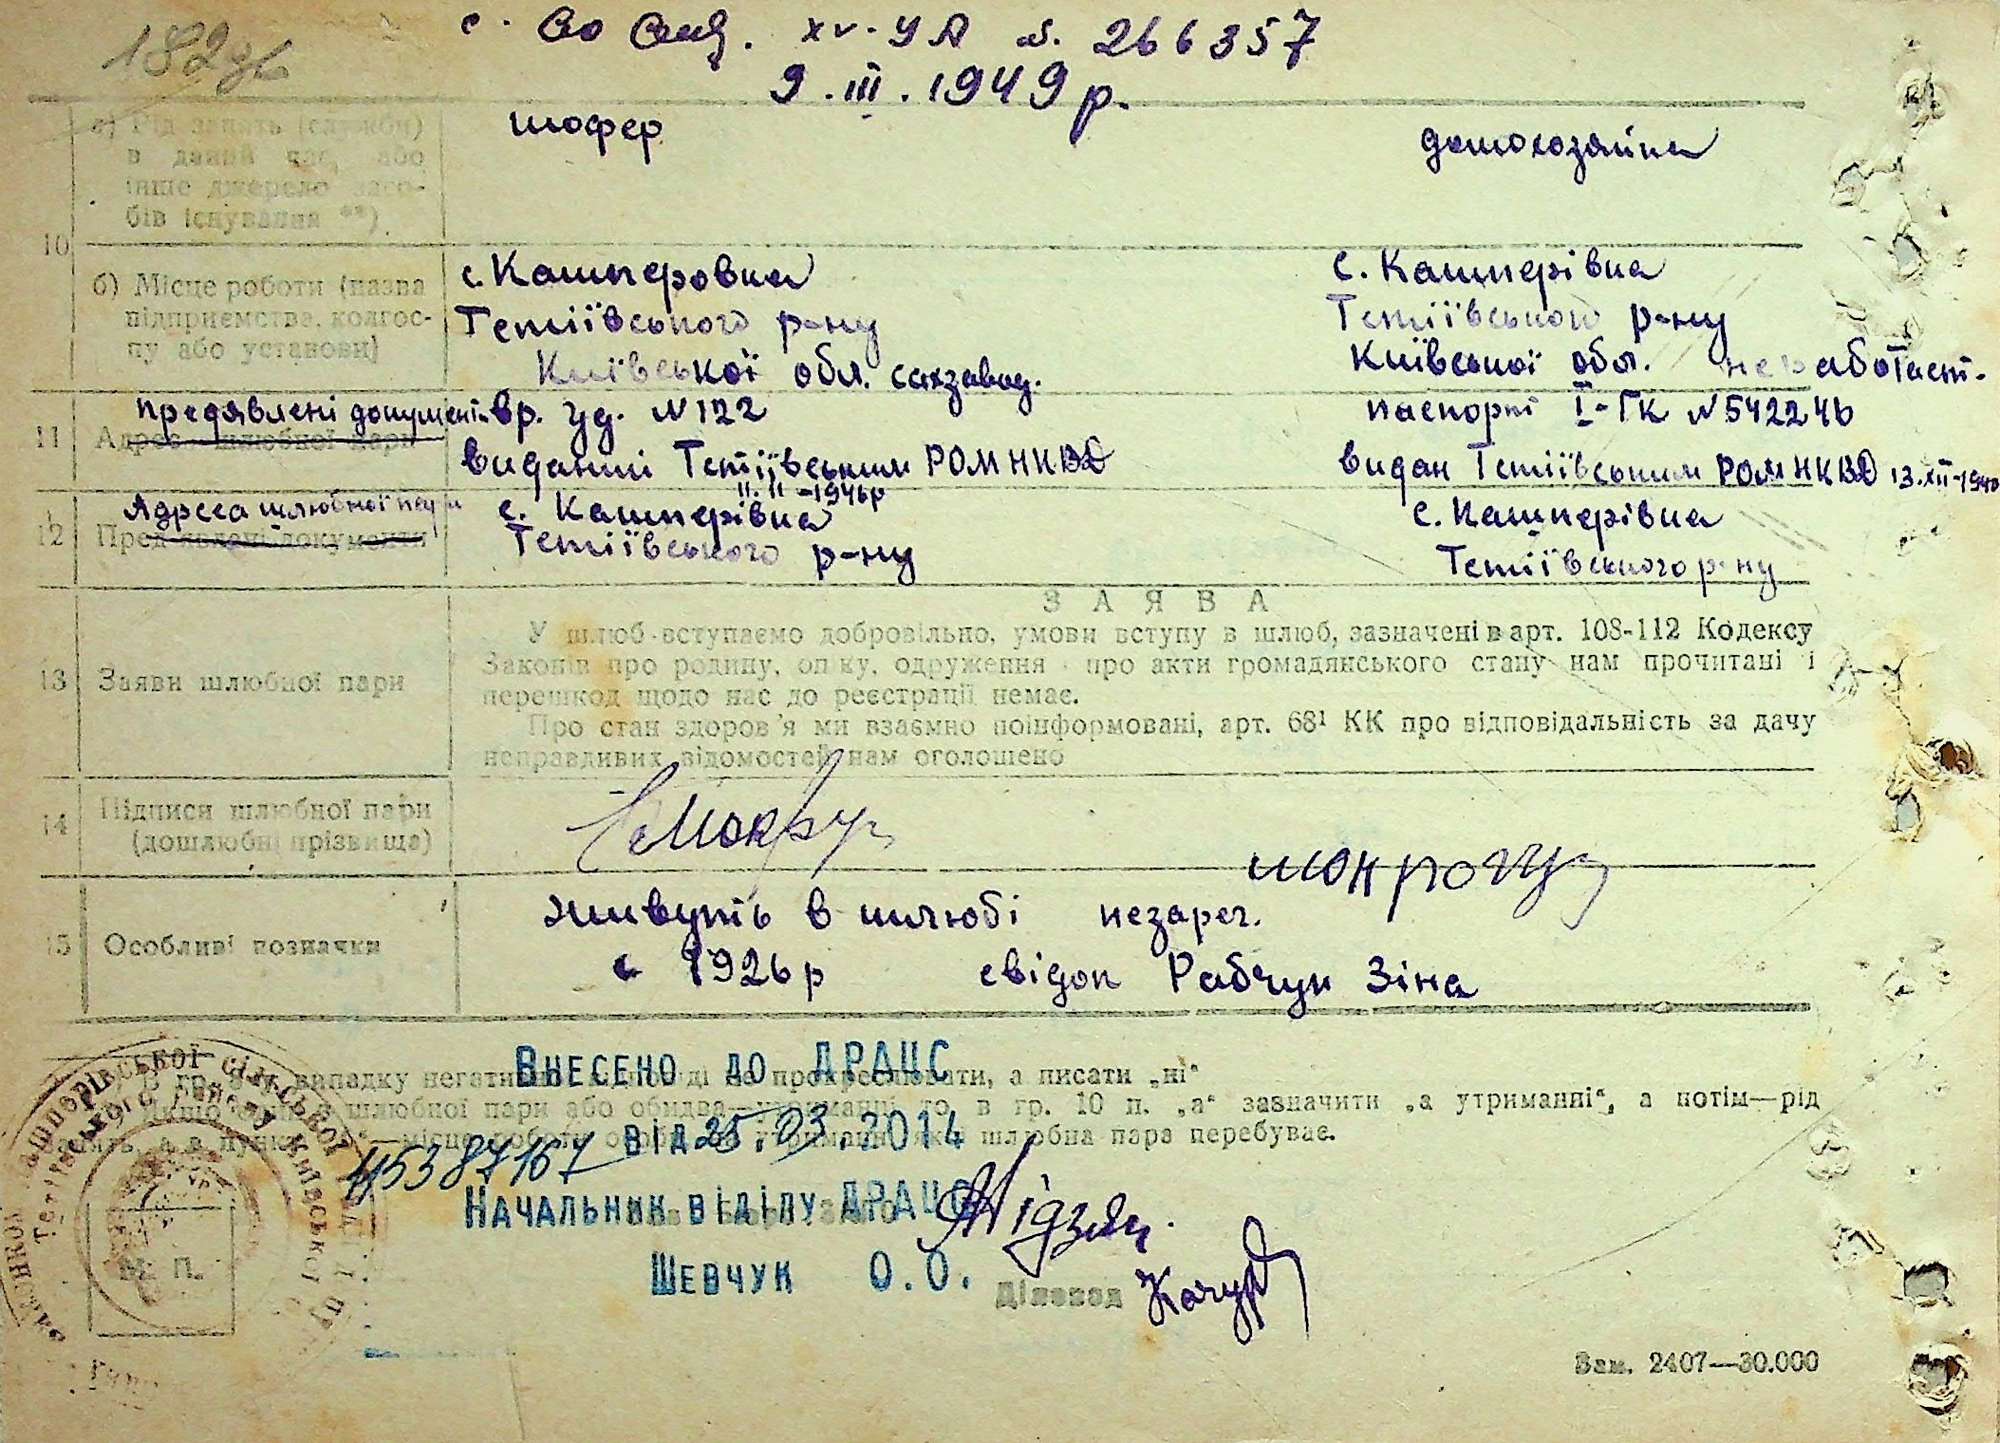 182
XV-УА №. 266357
9.III.1949р.
10
а) Рід занять (служби) в даний час, або інше джерело засобів існування **)
шофер
домохозяйка
б) Місце роботи (назва підприємства, колгоспу або установи)
с. Кашперовка
Тетіївського р-ну
Київської обл. сахзавод.
с. Кашперівка
Тетіївського р-ну
Київської обл. неработает.
11
Предявлені документи
Адреса шлюбної пари
вр. уд. №122
виданий Тетіївським РОМ НКВД
11.II-1946р
паспорт I-ГК №542246
видан Тетіївським РОМ НКВД 13.XII-1940
12
Адреса шлюбної пари
Пред'явлені документи
с. Кашперівка
Тетіївського р-ну
с. Кашперівка
Тетіївського р-ну
13
Заяви шлюбної пари
ЗАЯВА
У шлюб вступаємо добровільно, умови вступу в шлюб, зазначені в арт. 108-112 Кодексу
Законів про родину, опіку, одруження і про акти громадянського стану нам прочитані і
перешкод щодо нас до реєстрації немає.
Про стан здоров'я ми взаємно поінформовані, арт. 68¹ КК про відповідальність за дачу
неправдивих відомостей нам оголошено
14
Підписи шлюбної пари
(дошлюбні прізвища)
15
Особливі позначки
живуть в шлюбі незарег.
с 1926р свідок Рабчун Зіна
В гр. випадку негативн не прокреслювати, а писати „ні“
Якщо шлюбної пари або обидва утриманні, то в гр. 10 п. „а“ зазначити „а утриманні“, а потім—рід
місце роботи шлюбна пара перебуває.
Внесено до ДРАЦС
від 25.03.2014
45387167
Начальник відділу ДРАЦС
Шевчук О.О.
Діловод
М. П.
Кашперівської сільської
Тетіївського району Київської
Зам. 2407—30.000